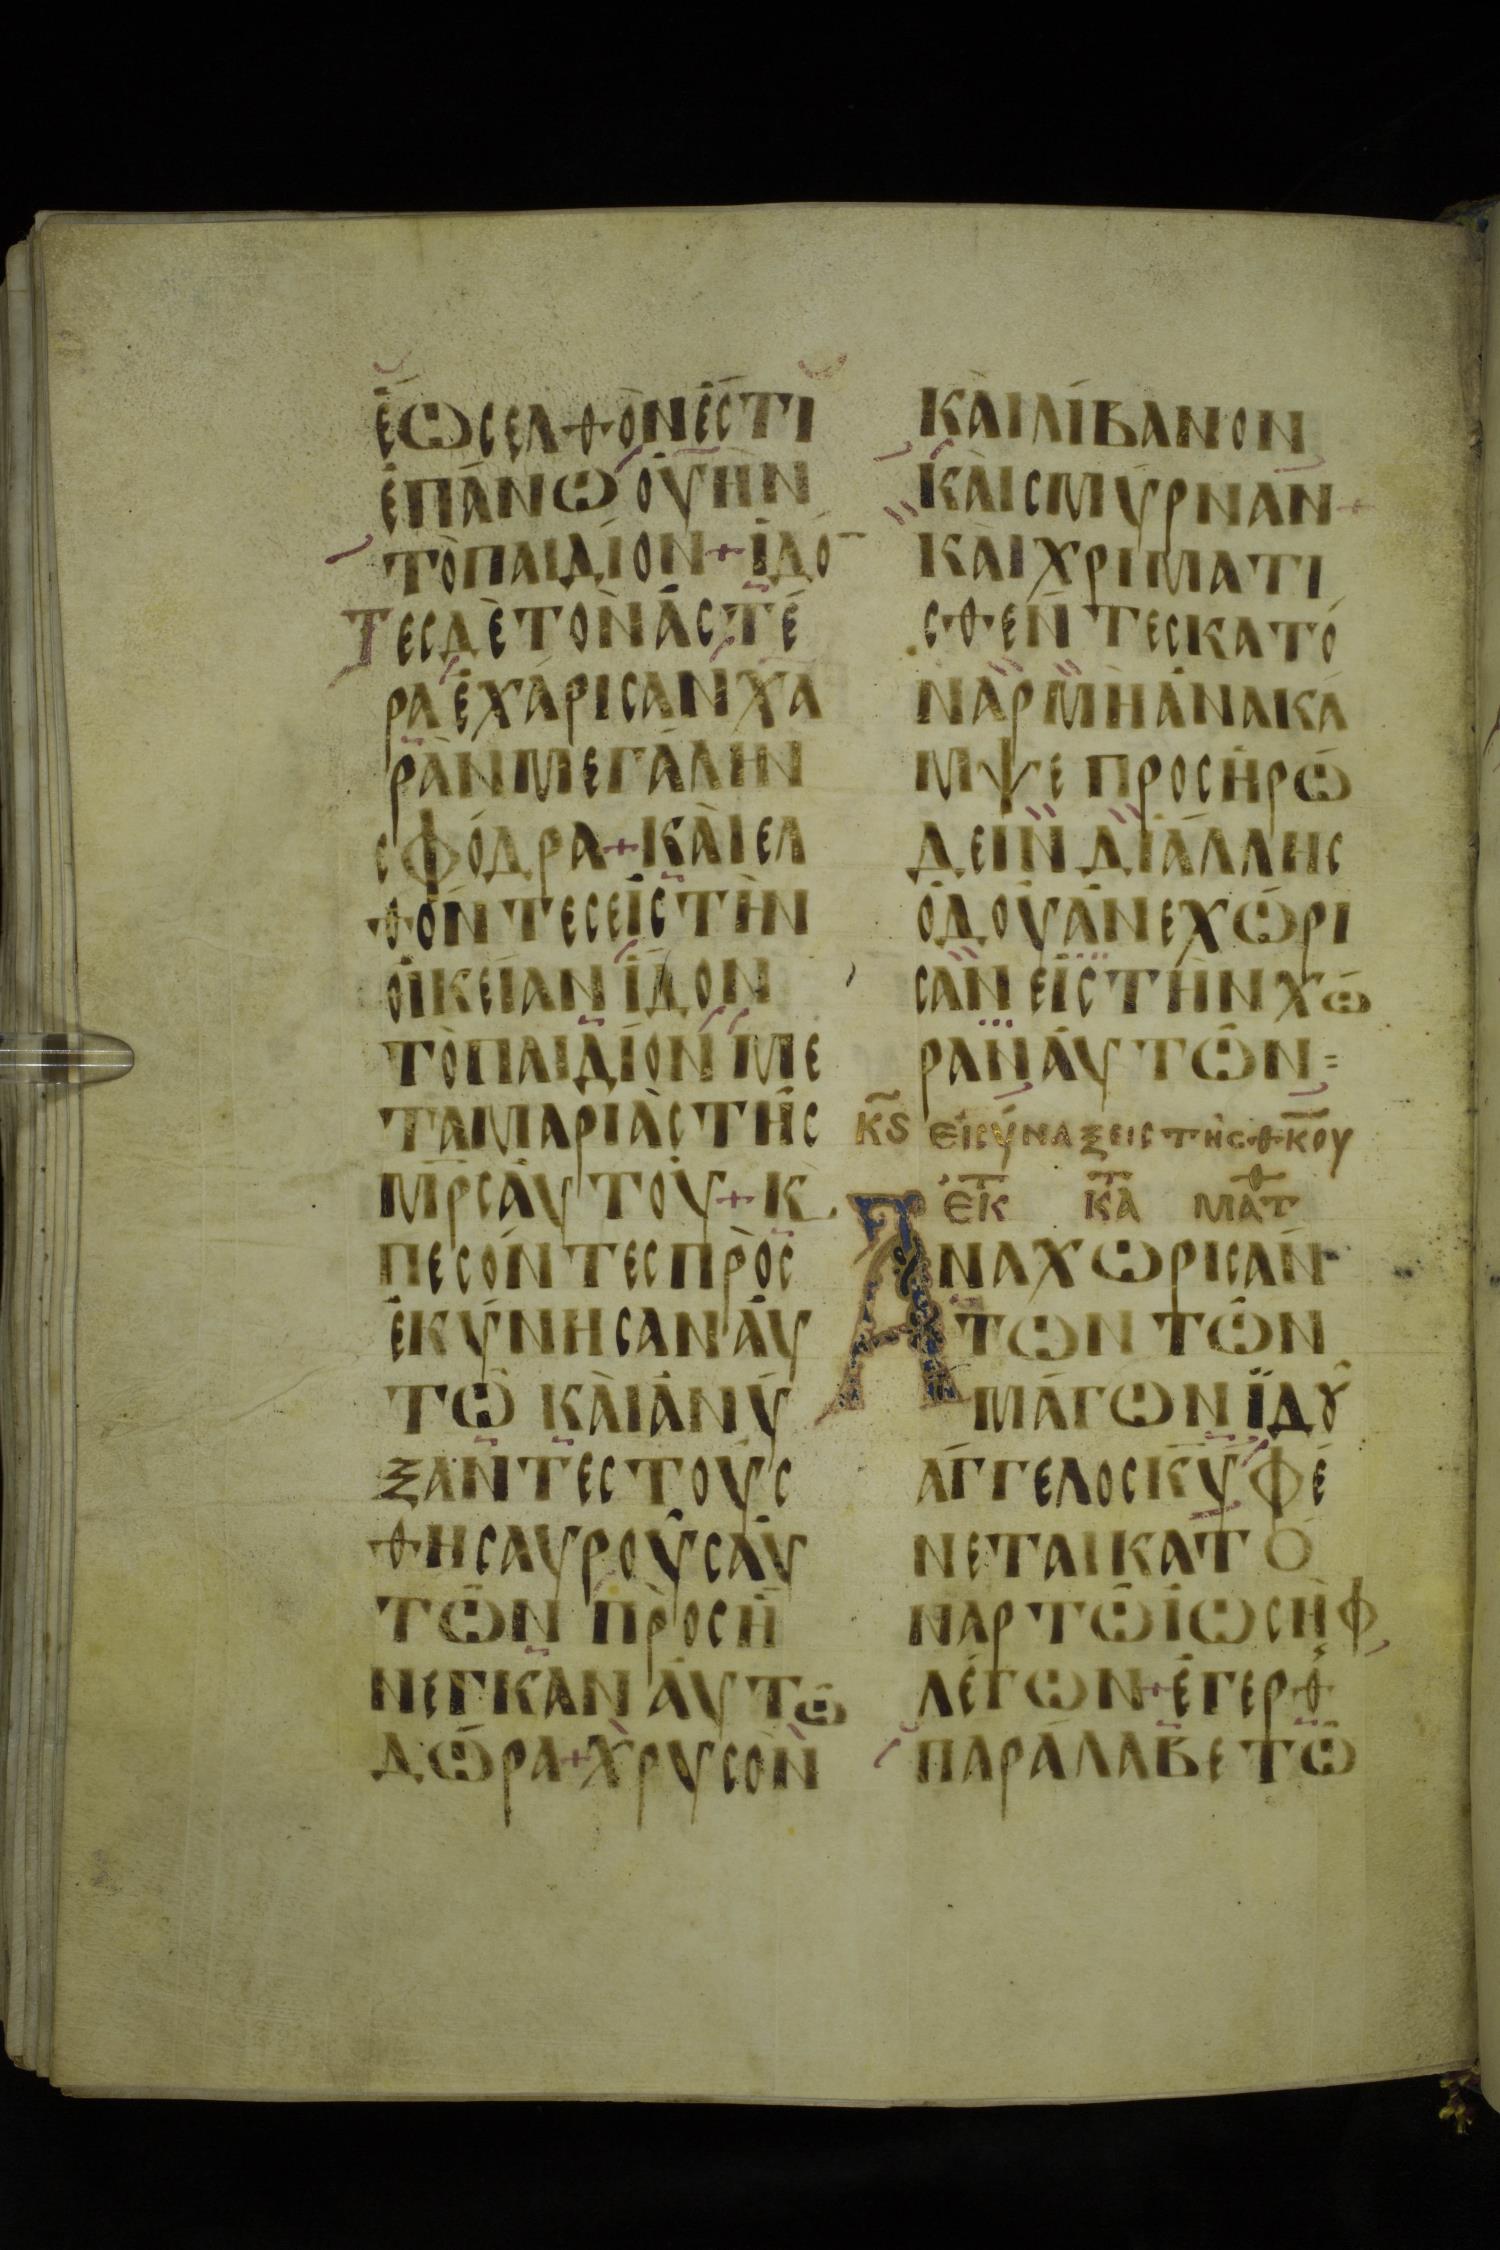 ἕωσελθὸνἔστι
ἐπάνωοὗἦν
τὸπαιδίον+ἰδό
τεςδὲτὸνἀστέ
ραἐχάρισανχα
ρὰνμεγάλην
σφόδρα+κὰιελ
θόντεςεἰςτὴν
οἰκείανἶδον
τὸπαιδίονμε
ταμαριὰςτῆς
μ̅ρ̅ςἀυτοῦ+κ
πεσόντεςπρὸς
ἐκύνησανἀυ
τῶκὰιἀνύ
ξαντεςτοὺς
θησαυροὺςἀυ
τῶνπρὸσή
νεγκανἀυτῶ
δῶρα+χρυσὸν
κὰιλίβανον
κὰισμύρναν+
κὰιχριματι
σθέντεςκατό
ναρμὴἀνακά
μψεπροςἡρώ
δεινδιἄλλης
ὁδοῦἀνεχώρι
σανεἰςτὴνχώ
ρανἀυτῶν=
κς εἰσύναξειςτῆςθκου
ἐκ κα ματθ
Αναχωρισάν
τωντῶν
μάγωνἰδοὺ
ἄγγελοςκ̅υ̅φέ
νεταικατό
ναρτῶἰωσὴφ
λέγων+ἐγερθ
παράλαβετῶ